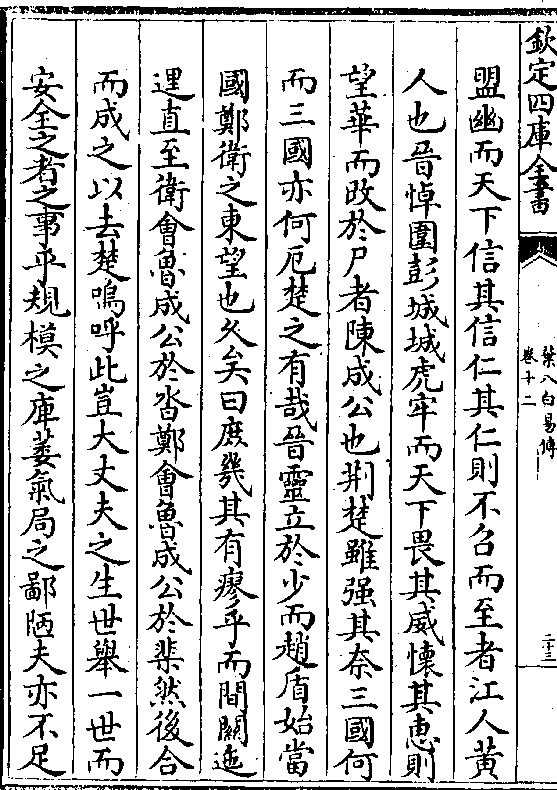 欽定四庫全書
葉八白易傳
卷十二
二十三
盟幽而天下信其信仁其仁則不召而至者江人黃
人也晉悼圍彭城城虎牢而天下畏其威懷其惠則
望華而改於尸者陳成公也荆楚雖强其奈三國何
而三國亦何厄楚之有哉晉靈立於少而趙盾始當
國鄭衛之東望也久矣曰庶幾其有瘳乎而間關迤
逞直至衛會魯成公於沓鄭會魯成公於棐然後合
而成之以去楚嗚呼此豈大丈夫之生世舉一世而
安全之者之事乎規模之庫萎氣局之鄙陋夫亦不足